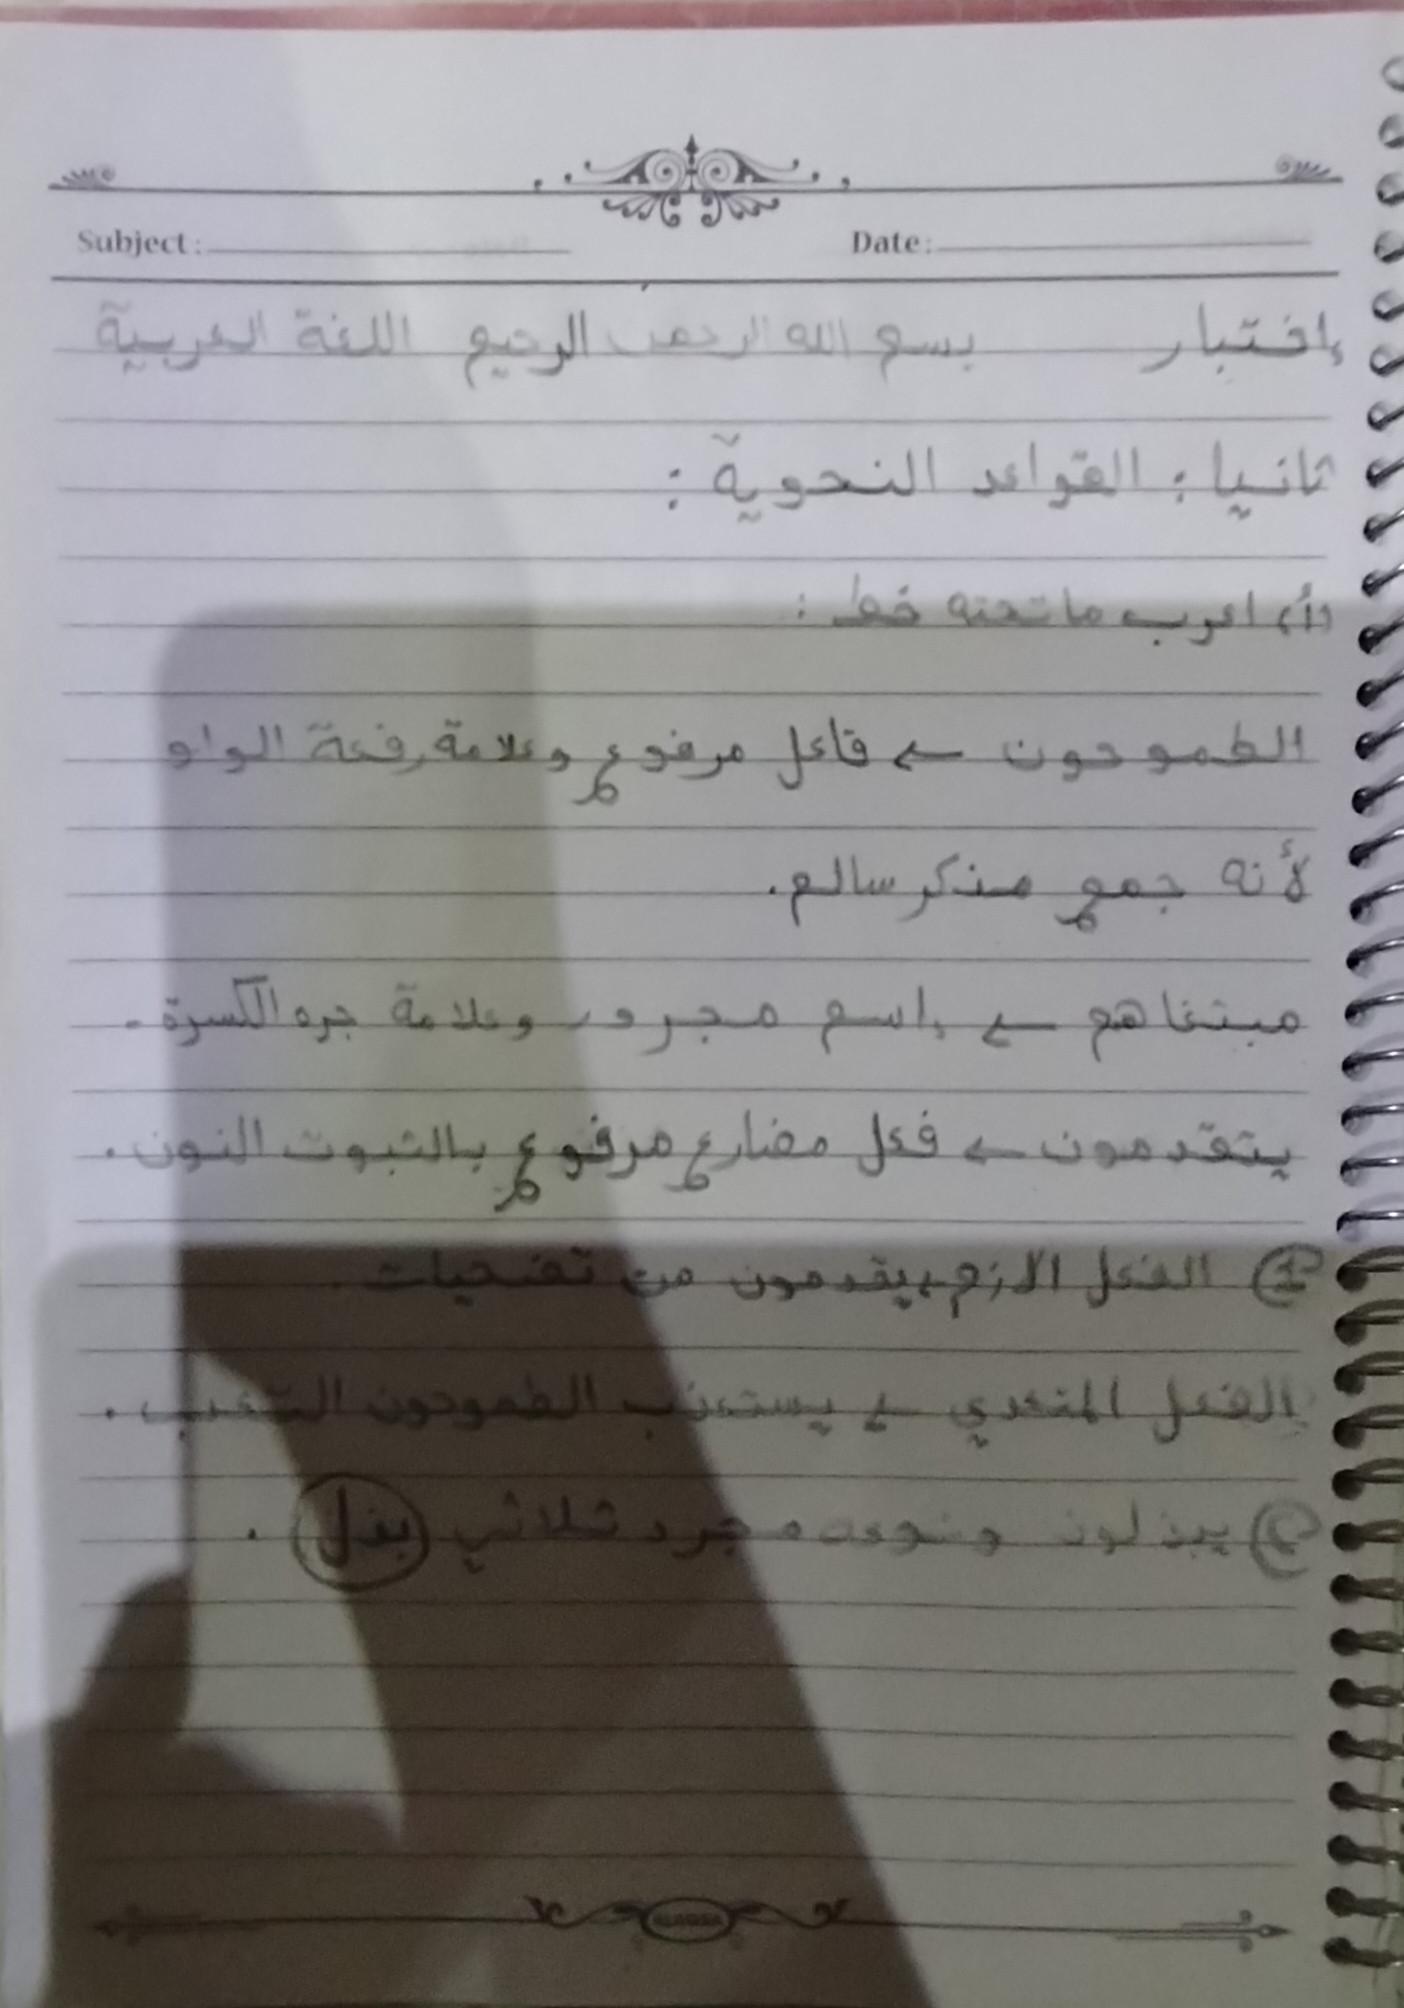 Subject: Date:
إختبار بسم الله الرحمن الرحيم اللغة العربية
ثانيا: القواعد النحوية:
(أ) اعرب ما تحته خط:
الطموحون ← فاعل مرفوع وعلامة رفعة الواو
لأنه جمع مذكر سالم.
مبتغاهم ← إسم مجرور وعلامة جره الكسرة.
يتقدمون ← فعل مضارع مرفوع بالثبوت النون.
① الفعل الازم ← يقدمون من تضحيات.
الفعل المتعدي ← يستعذب الطموحون التعب.
② يبذلون ونوعه مجرد ثلاثي بذل.